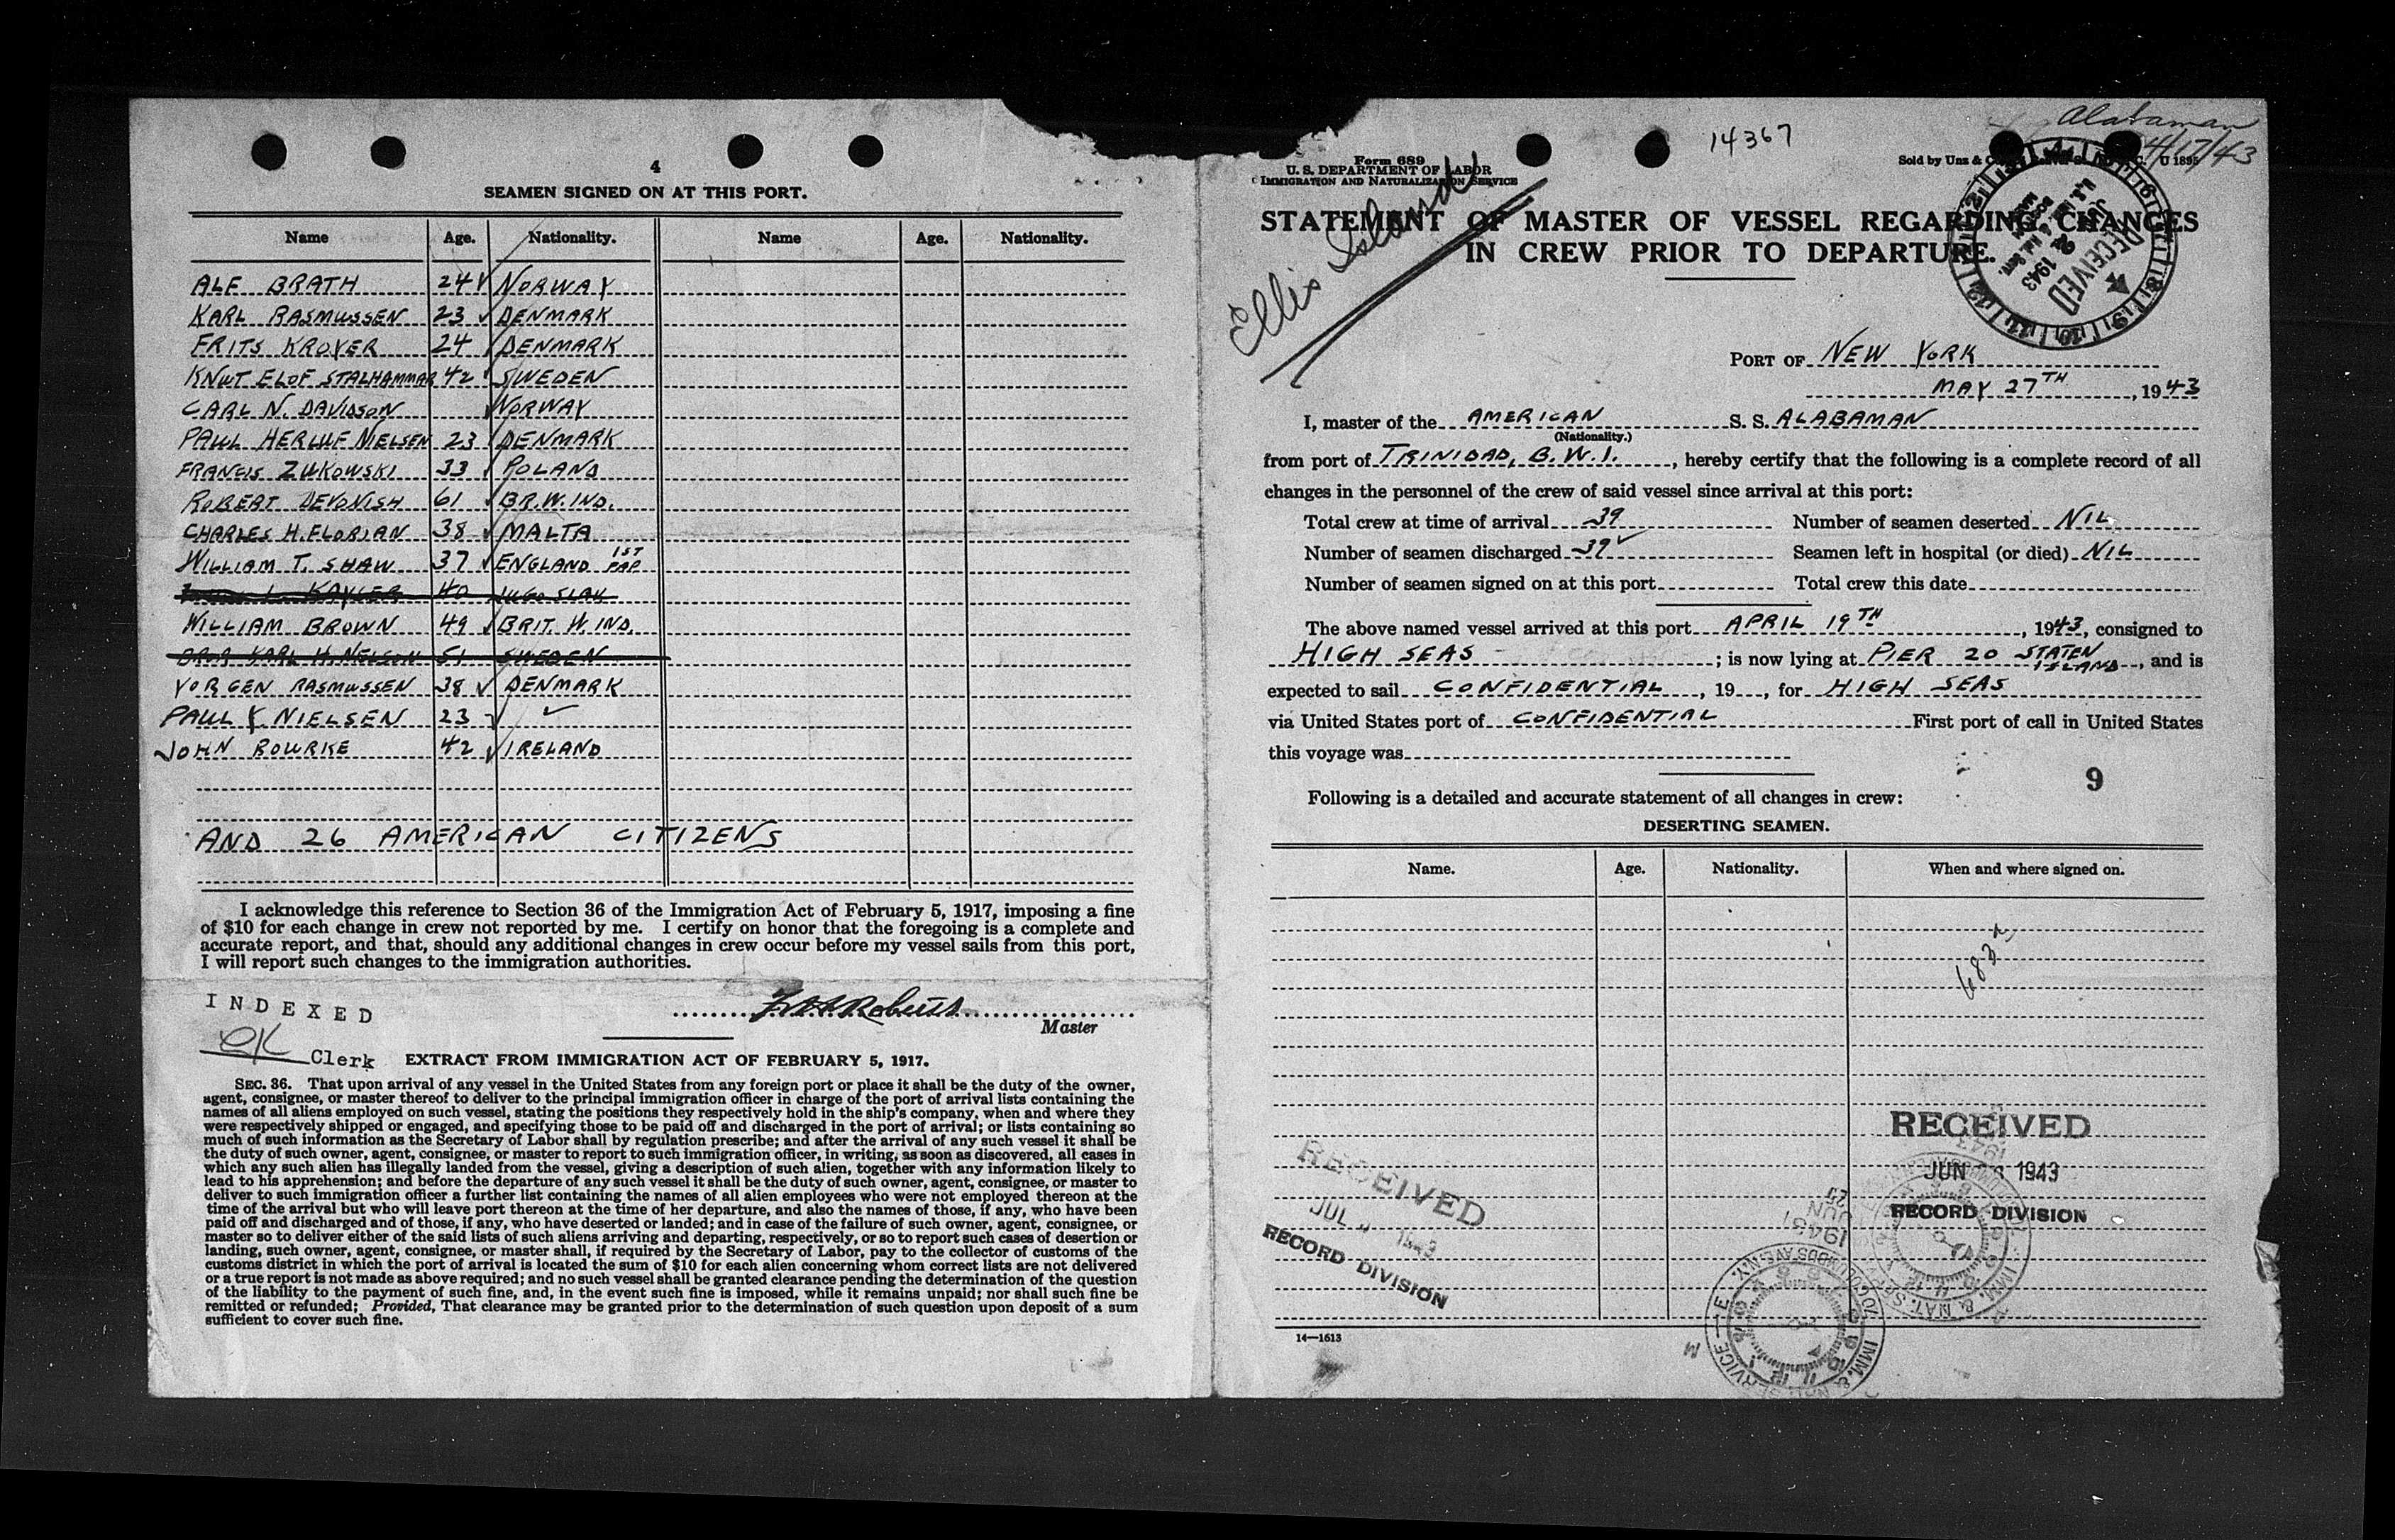 4
SEAMEN SIGNED ON AT THIS PORT.
Name Age. Nationality. Name Age. Nationality.
ALF BRATH 24 ✓ NORWAY
KARL RASMUSSEN 23 ✓ DENMARK
FRITS KROYER 24 ✓ DENMARK
KNUT ELOF STALHAMMAR 42 ✓ SWEDEN
CARL N. DAVIDSON ✓ NORWAY
PAUL HERLUF NIELSEN 23 ✓ DENMARK
FRANCIS ZUKOWSKI 33 ✓ POLAND
ROBERT DEVONISH 61 ✓ BR.W.IND.
CHARLES H. FLORIAN 38 ✓ MALTA
WILLIAM T. SHAW 37 ✓ ENGLAND 1ST PAP
L. KAYCER 40 JUGO SLAV
WILLIAM BROWN 49 ✓ BRIT. W. IND.
KARL H. NELSON 51 SWEDEN
YORGEN RASMUSSEN 38 ✓ DENMARK
PAUL Y. NIELSEN 23 ✓ ✓
JOHN BOURKE 42 ✓ IRELAND
AND 26 AMERICAN CITIZENS
I acknowledge this reference to Section 36 of the Immigration Act of February 5, 1917, imposing a fine
of $10 for each change in crew not reported by me. I certify on honor that the foregoing is a complete and
accurate report, and that, should any additional changes in crew occur before my vessel sails from this port,
I will report such changes to the immigration authorities.
INDEXED
Roberts
Master
Clerk
EXTRACT FROM IMMIGRATION ACT OF FEBRUARY 5, 1917.
SEC. 36. That upon arrival of any vessel in the United States from any foreign port or place it shall be the duty of the owner,
agent, consignee, or master thereof to deliver to the principal immigration officer in charge of the port of arrival lists containing the
names of all aliens employed on such vessel, stating the positions they respectively hold in the ship's company, when and where they
were respectively shipped or engaged, and specifying those to be paid off and discharged in the port of arrival; or lists containing so
much of such information as the Secretary of Labor shall by regulation prescribe; and after the arrival of any such vessel it shall be
the duty of such owner, agent, consignee, or master to report to such immigration officer, in writing, as soon as discovered, all cases in
which any such alien has illegally landed from the vessel, giving a description of such alien, together with any information likely to
lead to his apprehension; and before the departure of any such vessel it shall be the duty of such owner, agent, consignee, or master to
deliver to such immigration officer a further list containing the names of all alien employees who were not employed thereon at the
time of the arrival but who will leave port thereon at the time of her departure, and also the names of those, if any, who have been
paid off and discharged and of those, if any, who have deserted or landed; and in case of the failure of such owner, agent, consignee, or
master so to deliver either of the said lists of such aliens arriving and departing, respectively, or so to report such cases of desertion or
landing, such owner, agent, consignee, or master shall, if required by the Secretary of Labor, pay to the collector of customs of the
customs district in which the port of arrival is located the sum of $10 for each alien concerning whom correct lists are not delivered
or a true report is not made as above required; and no such vessel shall be granted clearance pending the determination of the question
of the liability to the payment of such fine, and, in the event such fine is imposed, while it remains unpaid; nor shall such fine be
remitted or refunded; Provided, That clearance may be granted prior to the determination of such question upon deposit of a sum
sufficient to cover such fine.
14367
Alabaman
4/17/43
Form 689
U. S. DEPARTMENT OF LABOR
IMMIGRATION AND NATURALIZATION SERVICE
Sold by Unz &
U 1895
Ellis Island
RECEIVED
JUN 2 1943
STATEMENT OF MASTER OF VESSEL REGARDING CHANGES
IN CREW PRIOR TO DEPARTURE.
PORT OF NEW YORK
MAY 27TH, 1943
I, master of the AMERICAN S. S. ALABAMAN
(Nationality.)
from port of TRINIDAD, B.W.I., hereby certify that the following is a complete record of all
changes in the personnel of the crew of said vessel since arrival at this port:
Total crew at time of arrival 39 Number of seamen deserted NIL
Number of seamen discharged 39 ✓ Seamen left in hospital (or died) NIL
Number of seamen signed on at this port Total crew this date
The above named vessel arrived at this port APRIL 19TH, 1943, consigned to
HIGH SEAS ; is now lying at PIER 20 STATEN ISLAND, and is
expected to sail CONFIDENTIAL, 19 , for HIGH SEAS
via United States port of CONFIDENTIAL First port of call in United States
this voyage was
9
Following is a detailed and accurate statement of all changes in crew:
DESERTING SEAMEN.
Name. Age. Nationality. When and where signed on.
RECEIVED
JUN 1943
RECORD DIVISION
RECEIVED
JUL 1943
RECORD DIVISION
14—1613